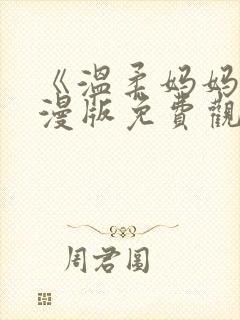 《溫柔妈妈
漫版免費觀
周君圓